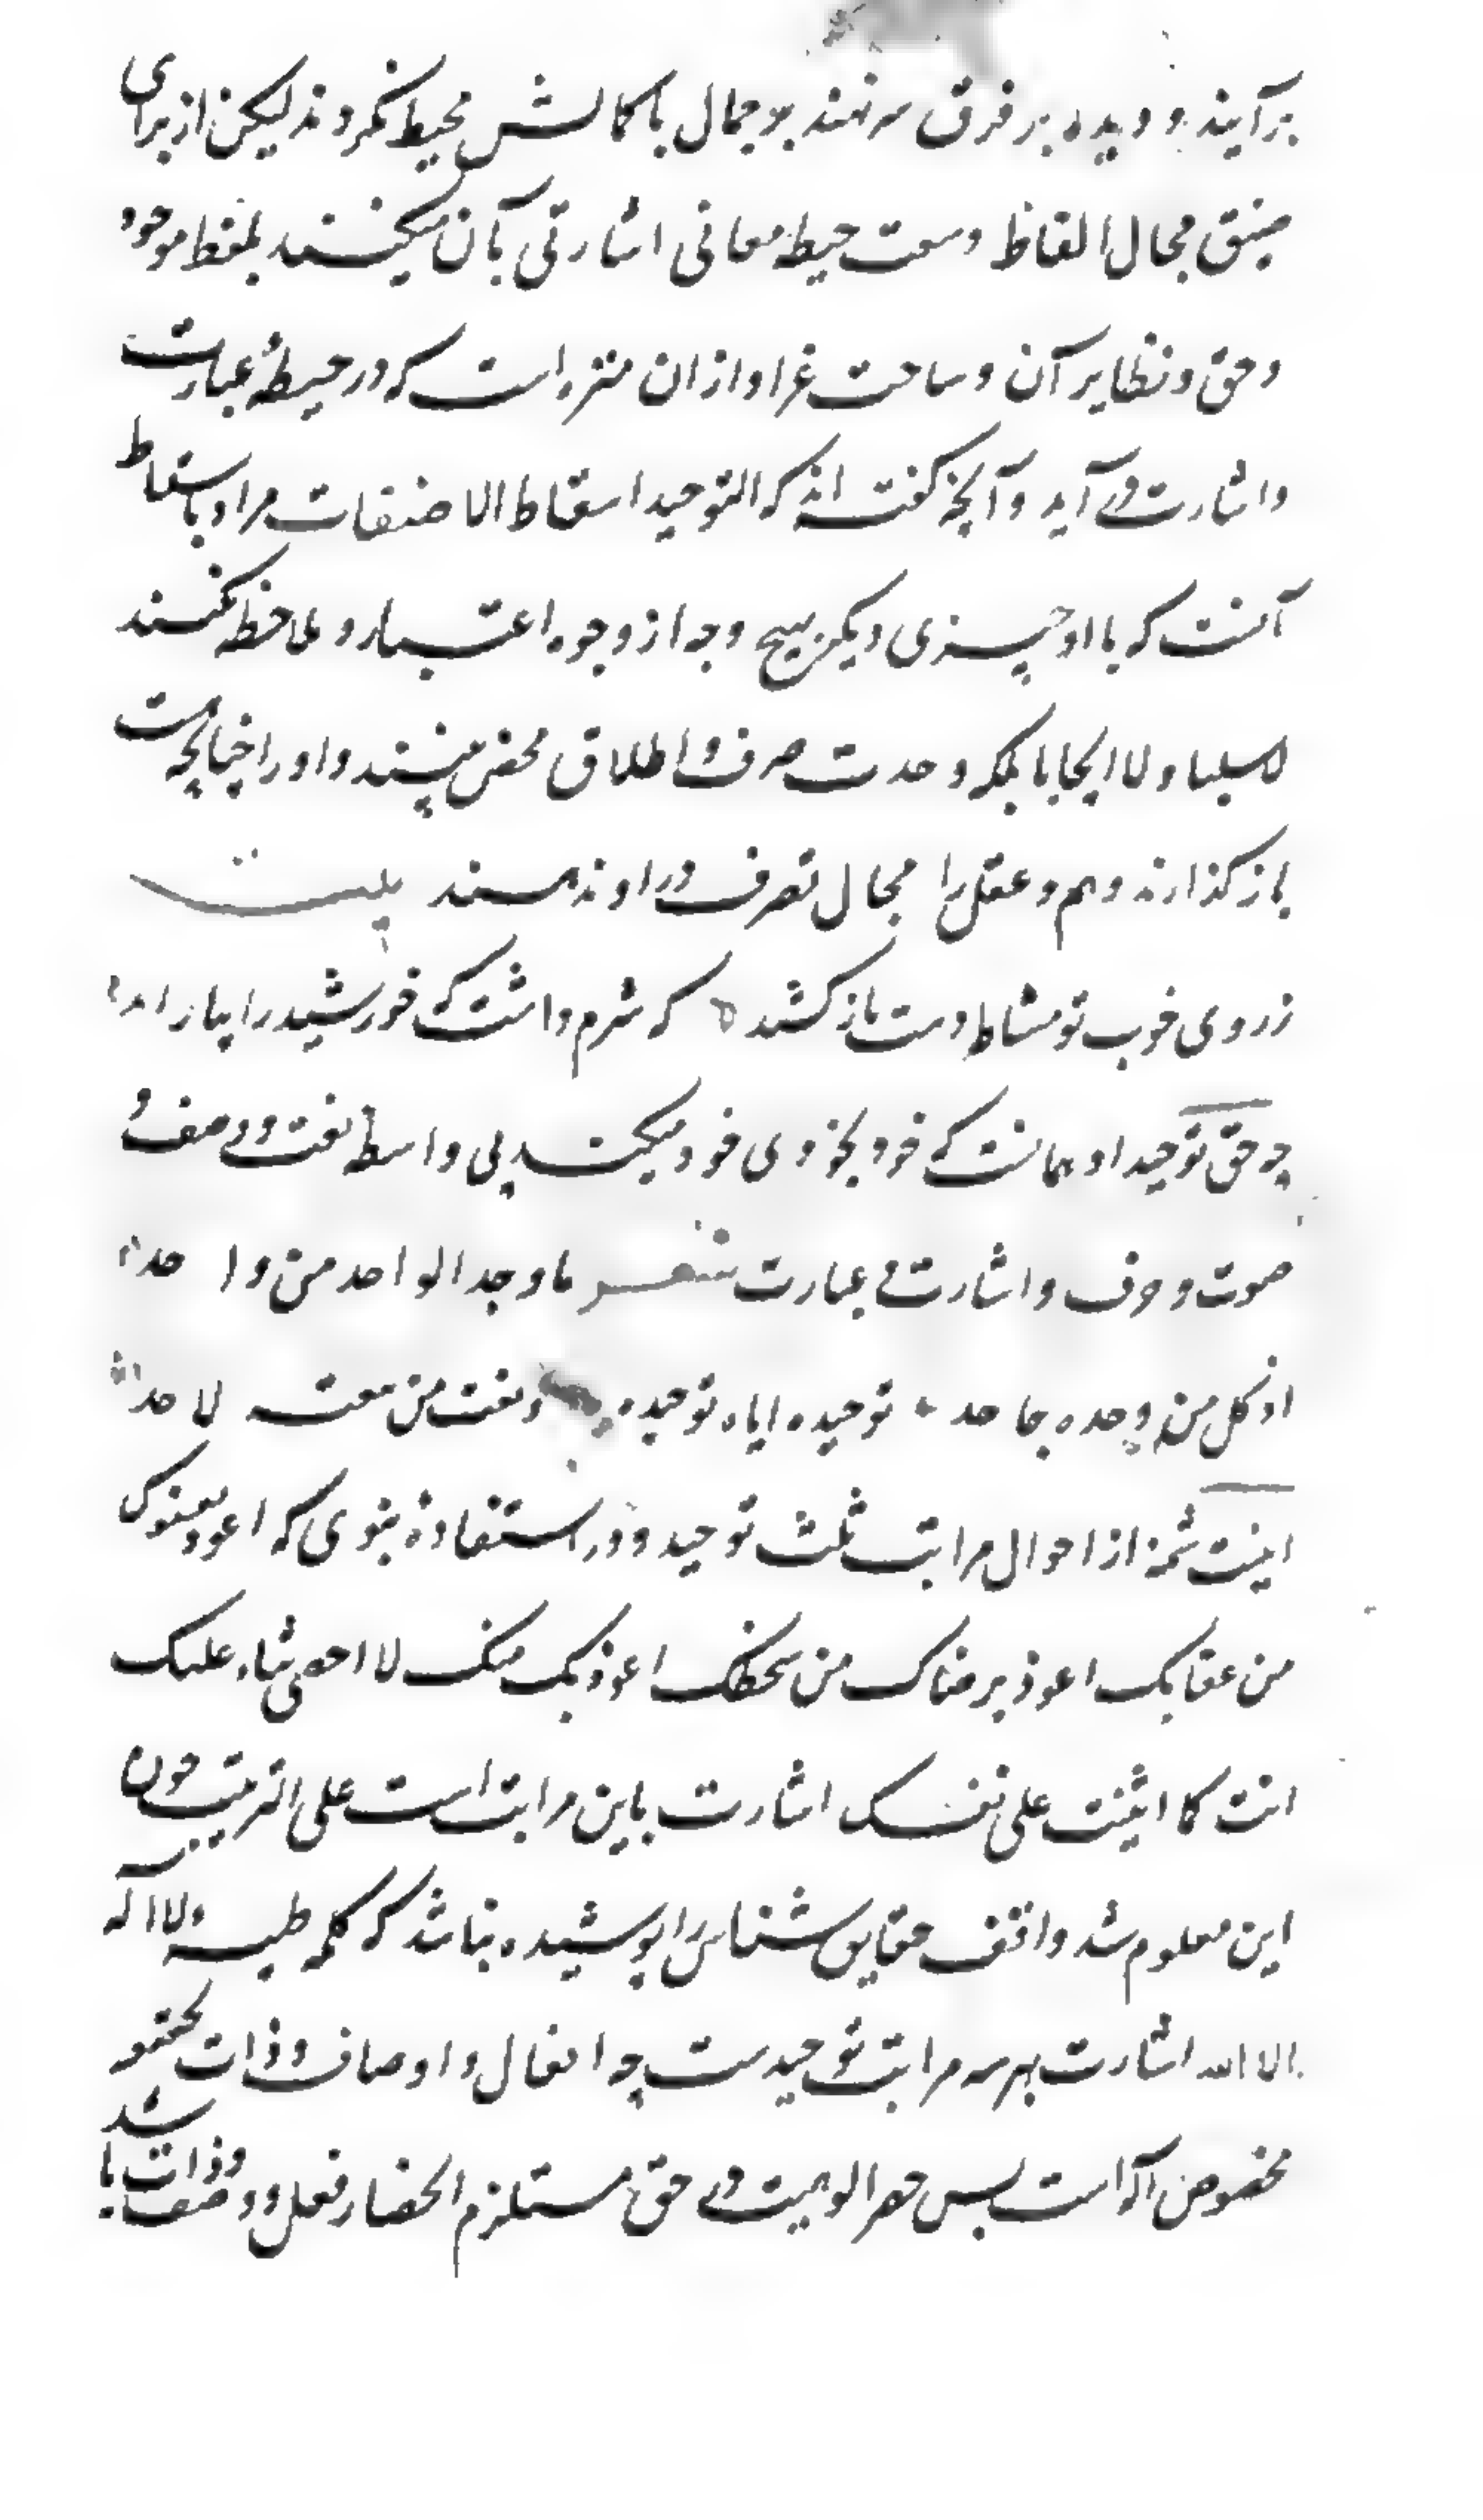 برآیند و دیده بر فرق سر نهند بر جمال با کمالش محیط نکردند لیکن از برای
ضیق مجال الفاظ وسعت حیطه معانی اشارتی بآن میکنند بلفظ موجود
و حق و نظایر آن و ساحت عز او از ان منزه است که در حیطهٔ عبارت
و اشارت در آید و آنچه گفته اند که التوحید اسقاط الاضافات مراد باسقاط
آنست که با او چیزی دیگر بهیچ وجه از وجوه اعتبار و ملاحظه نکنند
لا سلبا و لا ایجابا بلکه وحدت صرف و اطلاق محض بینند و او را چنانچه هست
باز گذارند و هم و عقل را مجال تصرف در او ندهند بیت
ز روی خوب تو مشاطه دست باز کشد ه که شرم داشت که خورشید را بیاراید
چه حق توحید او همانست که خود بخودی خود میکند بی واسطه نعت و وصف و
صوت و حرف و اشارت و عبارت شعر ما وحد الواحد من واحد
اذ کل من وحده جاحد توحیده ایاه توحیده و نعت من ینعته لاحد
اینست شمهٔ از احوال مراتب ثلث توحید و در استفاده نبوی که اعوذ بعفوک
من عقابک اعوذ برضاک من سخطک اعوذ بک منک لا احصی ثناء علیک
انت کما اثنیت علی نفسک اشارت باین مراتب است علی الترتیب چون
این معلوم شد واقف حقایق شناس را پوشیده نباشد که کلمه طیبه لا اله
الا الله اشارت بهر سه مراتب توحیدست چه افعال و اوصاف و ذات
مخصوص اله است پس حصر الوهیت در حق مستلزم انحصار فعل و وصف و ذات با
شد